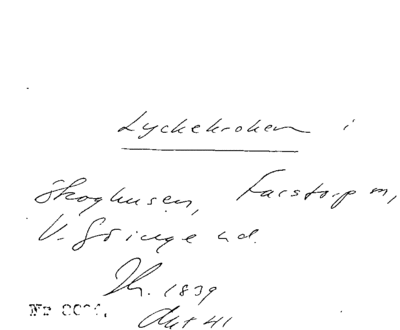 Lyckekroken i
Skoghusen, Farstorp m,
V. Göinge hd.
Th. 1839
Akt 41
Nr